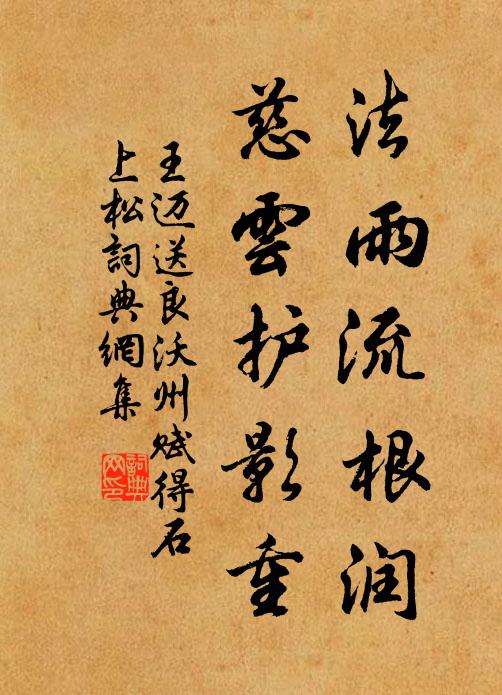 法雨流根润
慈雲护影重
王迈送良沃州赋得石
上松詞典網集
詞典
网印